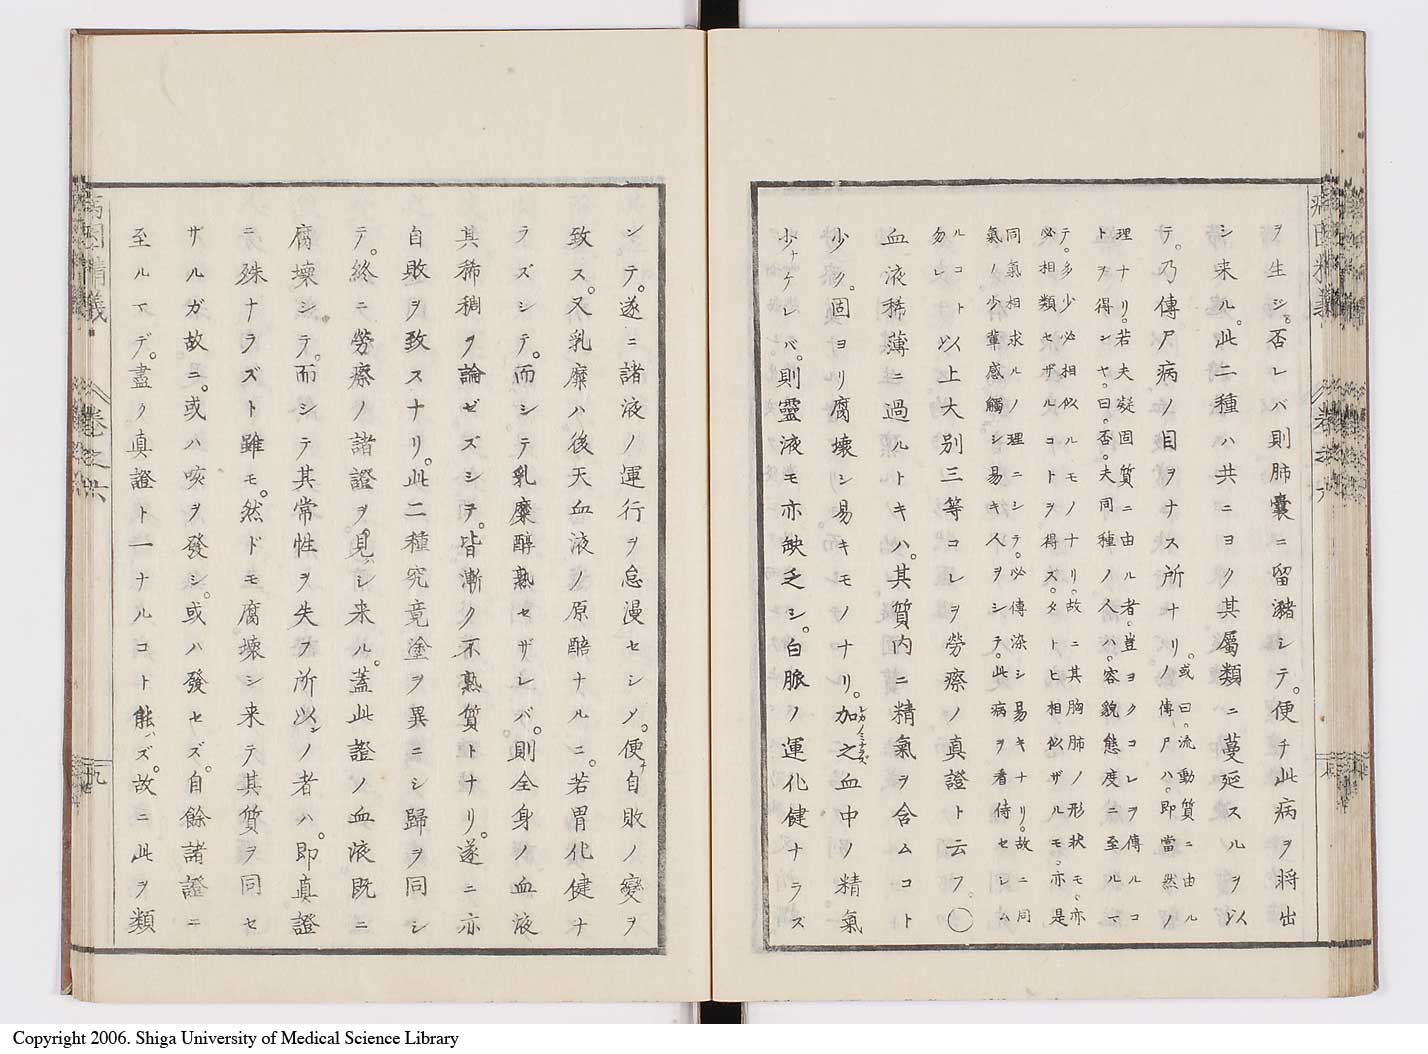 ヲ生シ。否レバ則肺嚢ニ留瀦シテ。便チ此病ヲ将出
シ来ル。此二種ハ共ニヨク其屬類ニ蔓延スルヲ以
テ。乃傳尸病ノ目ヲナス所ナリ。或曰。流動質ニ由ル
ノ傳尸ハ。即當然ノ
理ナリ。若夫凝固質ニ由ル者。豈ヨクコレヲ傳ルコ
トヲ得ンヤ。曰。否。夫同種ノ人ハ。容貌態度ニ至ルマ
テ。多少必相似ルモノナリ。故ニ其胸肺ノ形状モ。亦
必相類セザルコトヲ得ズ。タトヒ相似ザルモ。亦是
同氣相求ルノ理ニシテ。必傳染シ易キナリ。故ニ同
氣ノ少輩感觸シ易キ人ヲシテ。此病ヲ看侍セシム
ルコト
勿レ 以上大別三等コレヲ勞瘵ノ真證ト云フ。〇
血液稀薄ニ過ルトキハ。其質内ニ精氣ヲ含ムコト
少ク。固ヨリ腐壊シ易キモノナリ。加之血中ノ精氣
少ケレバ。則靈液モ亦缺乏シ。白脈ノ運化健ナラズ
ンテ。遂ニ諸液ノ運行ヲ怠漫セシメ。便チ自敗ノ變ヲ
致ス。又乳糜ハ後天血液ノ原醅ナルニ。若胃化健ナ
ラズシテ。而シテ乳糜醇熟セザレバ。則全身ノ血液
其稀稠ヲ論ゼズシテ。皆漸ク不熟質トナリ。遂ニ亦
自敗ヲ致スナリ。此二種究竟塗ヲ異ニシ歸ヲ同シ
テ。終ニ勞瘵ノ諸證ヲ見ハシ来ル。蓋此證ノ血液既ニ
腐壊シテ。而シテ其常性ヲ失フ所以ンノ者ハ。即真證
ニ殊ナラズト雖モ。然ドモ腐壊シ来テ其質ヲ同セ
ザルガ故ニ。或ハ咳ヲ發シ。或ハ發セズ。自餘諸證ニ
至ルマデ。盡ク真證ト一ナルコト能ハズ。故ニ此ヲ類
病因精義
巻之六
九